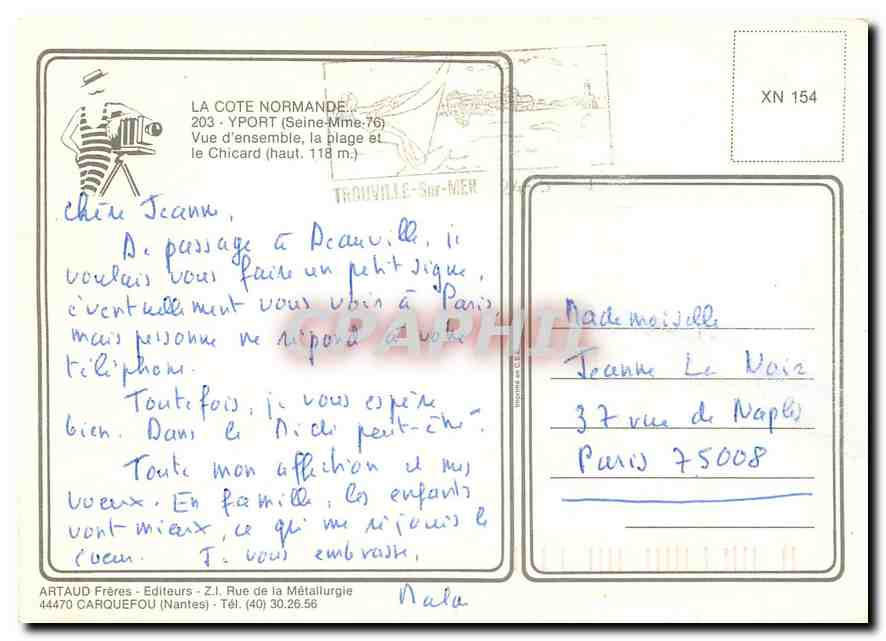 LA COTE NORMANDE...
203 - YPORT (Seine-Mme-76)
Vue d'ensemble, la plage et
le Chicard (haut. 118 m.)
TROUVILLE-Sur-MER
XN 154
Chère Jeanne,
De passage à Deauville, je
voulais vous faire un petit signe,
éventuellement vous voir à Paris,
mais personne ne répond à votre
téléphone.
Toutefois, je vous espère
bien. Dans le Midi peut-être.
Toute mon affection et mes
voeux. En famille, les enfants
vont mieux, ce qui me réjouit le
coeur. Je vous embrasse,
CPAPHIL
Imprimé en C.E.
Mademoiselle
Jeanne Le Noir
37 rue de Naples
Paris 75008
ARTAUD Frères - Editeurs - Z.I. Rue de la Métallurgie
44470 CARQUEFOU (Nantes) - Tél. (40) 30.26.56